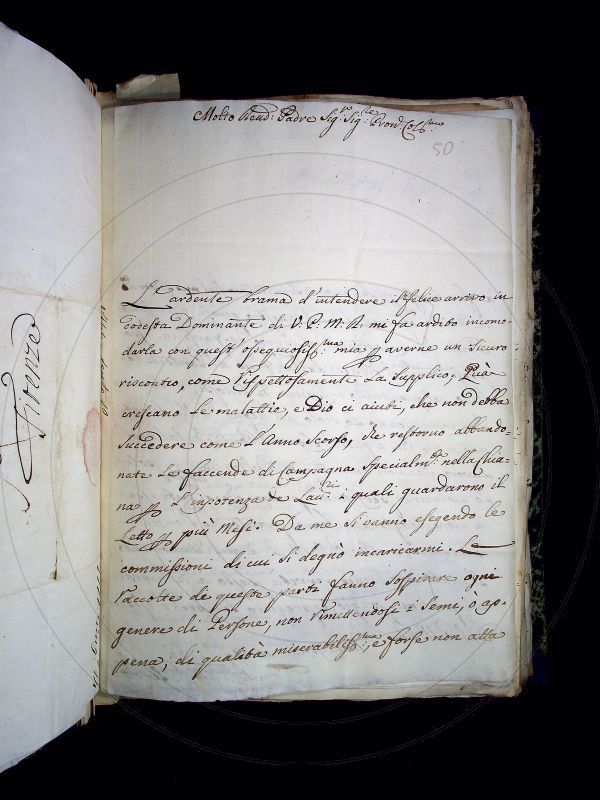 Molto Reud: Padre Sig.r Sig.re Pron: Col.mo
50
L'ardente brama d'intendere il felice arrivo in
codesta Dominante di V. P. M. R. mi fa ardito incomo-
darla con quest' ossequiosiss:ma mia p averne un sicuro
riscontro, come rispettosamente La supplico; Quà
crescano Le malattie, e Dio ci aiuti, che non debba
succedere come L'Anno Scorso, che restorno abbando-
nate Le faccende di Campagna specialm.te nella Chia-
na p L'inpotenza de Lau:ri i quali guardarono il
Letto p più Mesi. Da me si vanno esegendo le
commissioni di cui si degnò incaricarmi. Le
raccolte de queste parti fanno sospirare ogni
genere di Persone, non rimettendosi i Semi, ò ap-
pena, di qualità miserabiless:ma, e forse non atta
Firenze